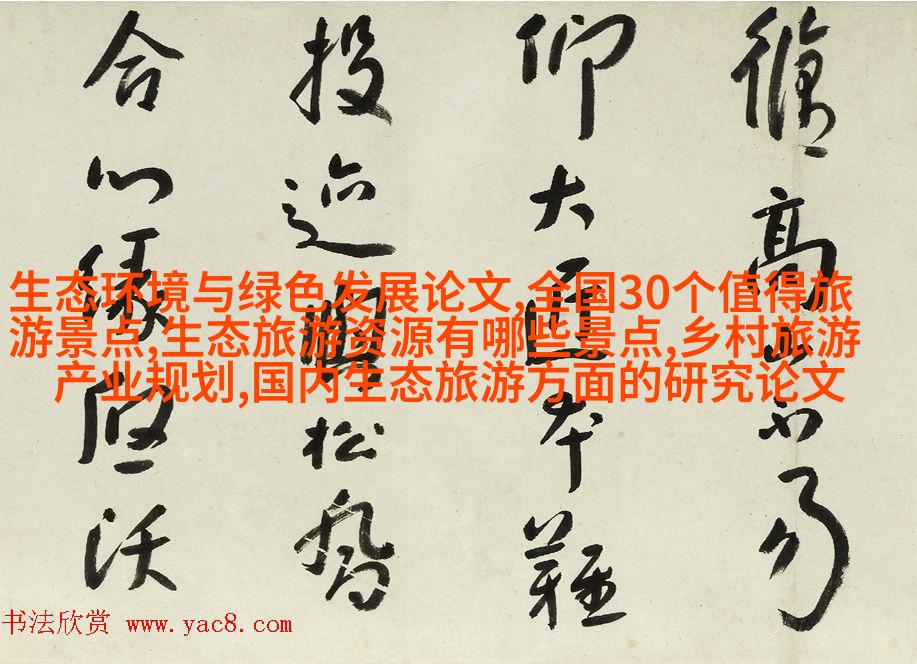 高不易
仰大匠本難
投迹松
合沃
生态环境与绿色发展论文,全国30个值得旅
游景点,生态旅游资源有哪些景点,乡村旅游
产业规划,国内生态旅游方面的研究论文
书法欣赏 www.yac8.com